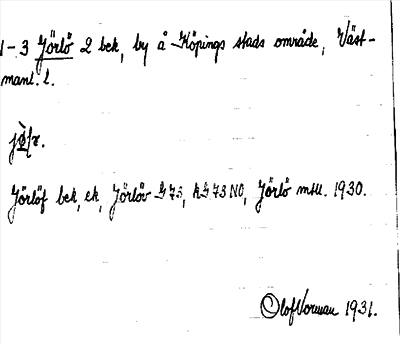 1-3 Jörlö 2 bek, by å Köpings stads område, Väst-
manl. l.
Jörlöf bek, ek, Jörlöv G 73, hG 73 NO, Jörlö msk. 1930.
Olof Vorman 1931.